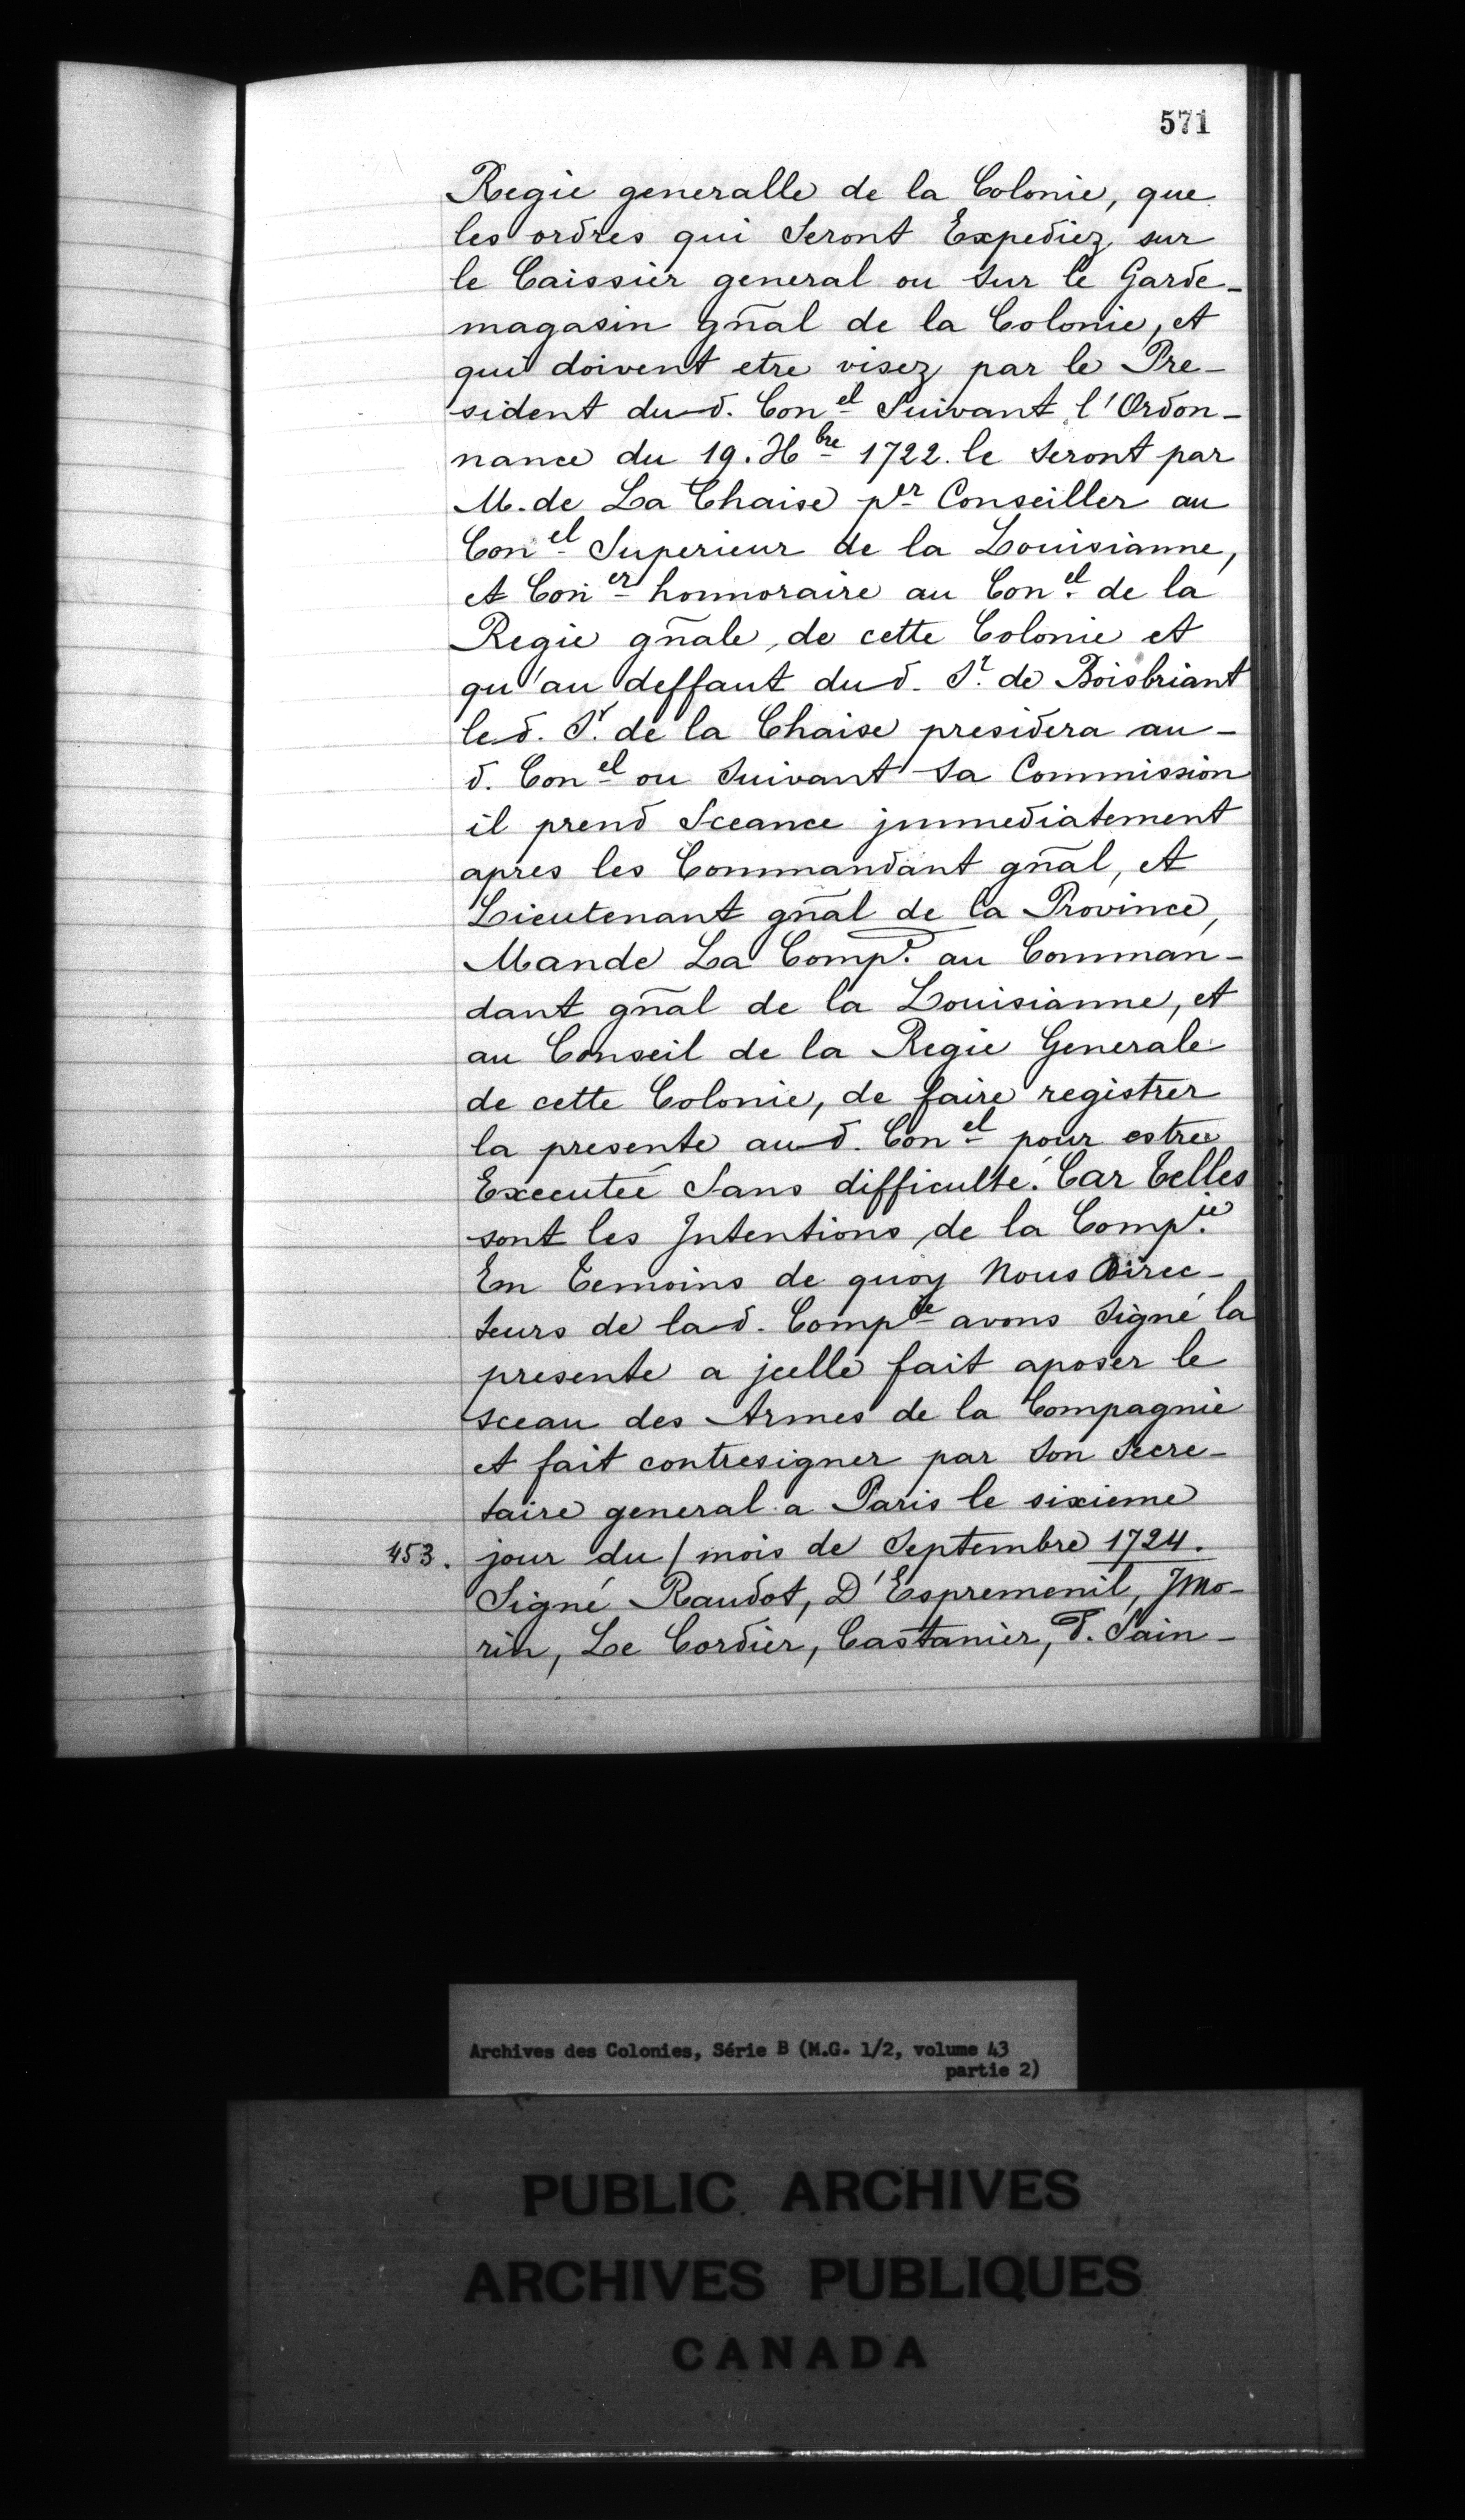 571
Regie generalle de la Colonie, que
les ordres qui Seront Expediez sur
le Caissier general ou sur le Garde-
magasin gñal de la Colonie, et
qui doivent etre visez par le Pre-
sident dud. Con.el Suivant l'Ordon-
nance du 19. Hbre 1722. le seront par
M. de La Chaise pr Conseiller au
Conel Superieur de la Louisianne,
et Coner honnoraire au Conel de la
Regie gñale, de cette Colonie et
qu'au deffaut dud. Sr. de Boisbriant
led. Sr. de la Chaise presidera au-
d. Conel ou suivant sa Commission
il prend Sceance jmmediatement
apres les Commandant gñal, et
Lieutenant gñal de la Province,
Mande La Comp.e au Comman-
dant gñal de la Louisianne, et
au Conseil de la Regie Generale
de cette Colonie, de faire registrer
la presente aud. Conel pour estree
Executeé Sans difficulté. Car Telles
sont les Intentions de la Comp.ie
En Temoins de quoy Nous Direc-
teurs de lad. Compie avons Signé la
presente a jcelle fait aposer le
sceau des Armes de la Compagnie
et fait contresigner par Son Secre-
taire general a Paris le sixieme
453. jour du / mois de Septembre 1724.
Signé Raudot, D'Espremenil, JMo-
rin, Le Cordier, Castanier, P. Sain-
Archives des Colonies, Série B (M.G. 1/2, volume 43
partie 2)
PUBLIC ARCHIVES
ARCHIVES PUBLIQUES
CANADA